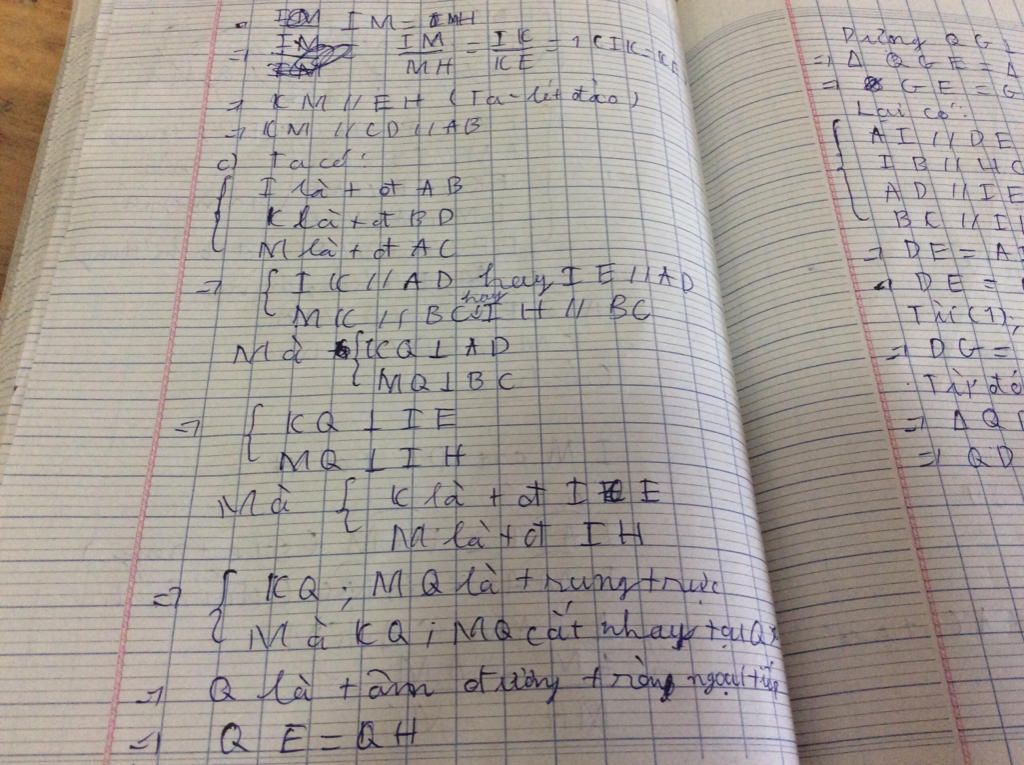 IM = MH
=> IM/MH = IK/KE = 1 (IK = KE
=> KM // EH (Ta-lét đảo)
=> KM // CD // AB
c) Ta có:
{ I là tđ AB
K là tđ BD
M là tđ AC
=> { IK // AD hay IE // AD
MK // BC hay IH // BC
Mà { KQ ⊥ AD
MQ ⊥ BC
=> { KQ ⊥ IE
MQ ⊥ IH
Mà { K là tđ IE
M là tđ IH
=> { KQ ; MQ là trung trực
Mà KQ ; MQ cắt nhau tại Q
=> Q là tâm đường tròn ngoại tiếp
=> QE = QH
Dựng QG
=> Δ QGE = Δ
=> GE = G
Lại có:
{ AI // DE
IB //
AD // IE
BC // I
=> DE = A
=> DE =
Từ (1);
=> DG =
Từ đó
=> Δ Q
=> QD